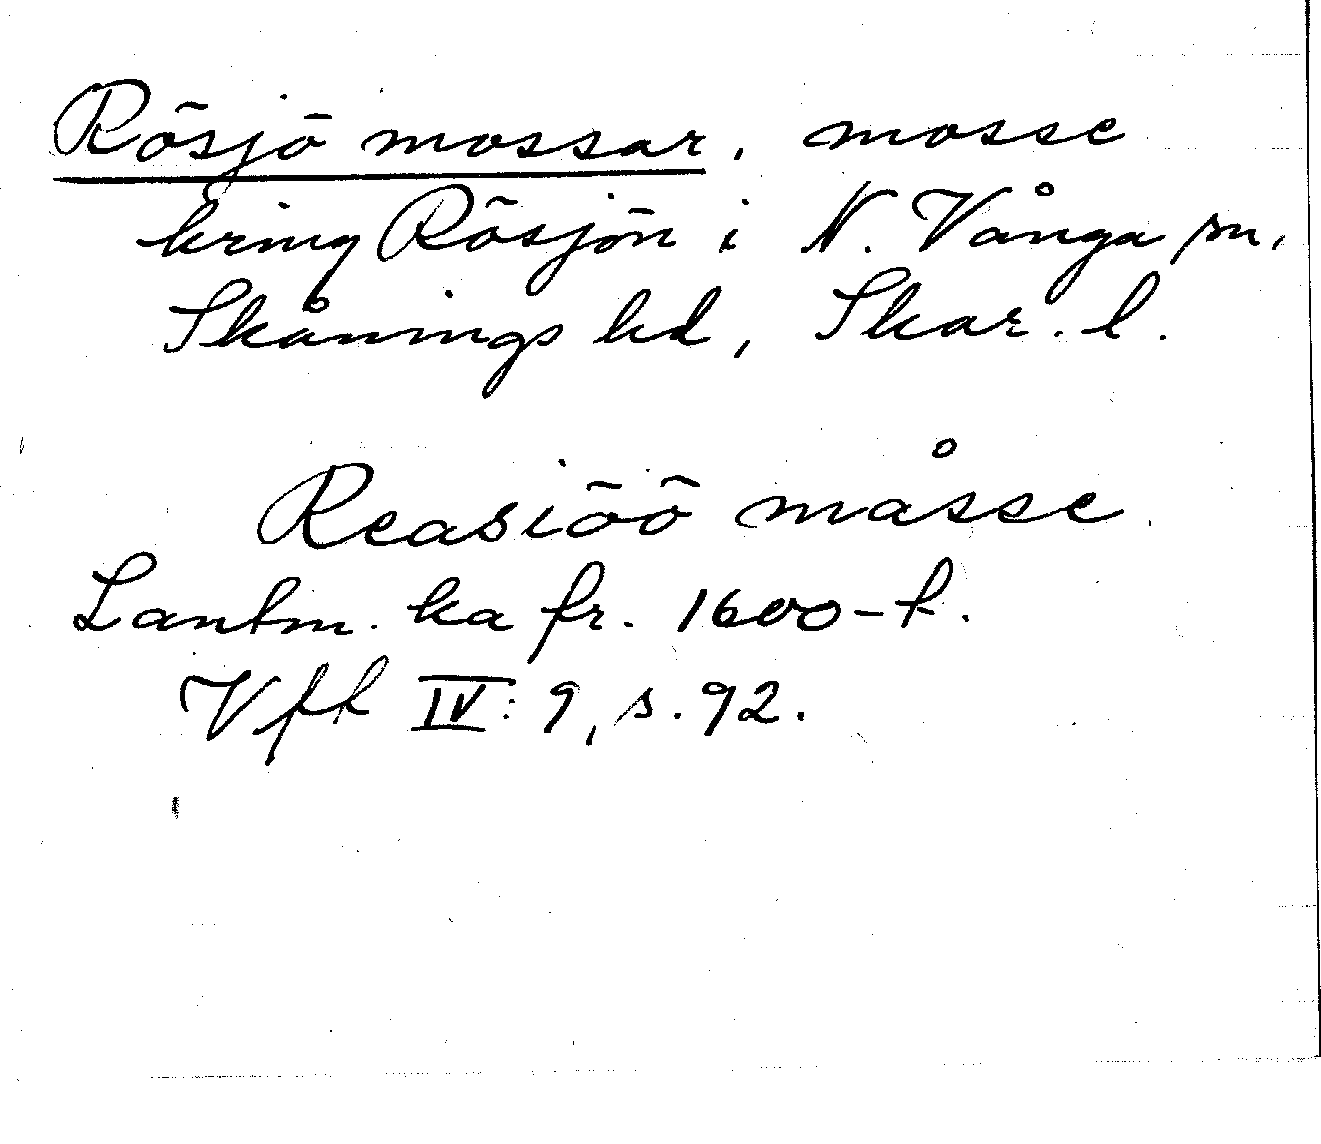 Rösjö mossar, mosse
kring Rösjön i N. Vånga sn,
Skånings hd, Skar. l.
Reasiöö måsse
Lantm. ka fr. 1600-t.
Vff IV: 9, s. 92.